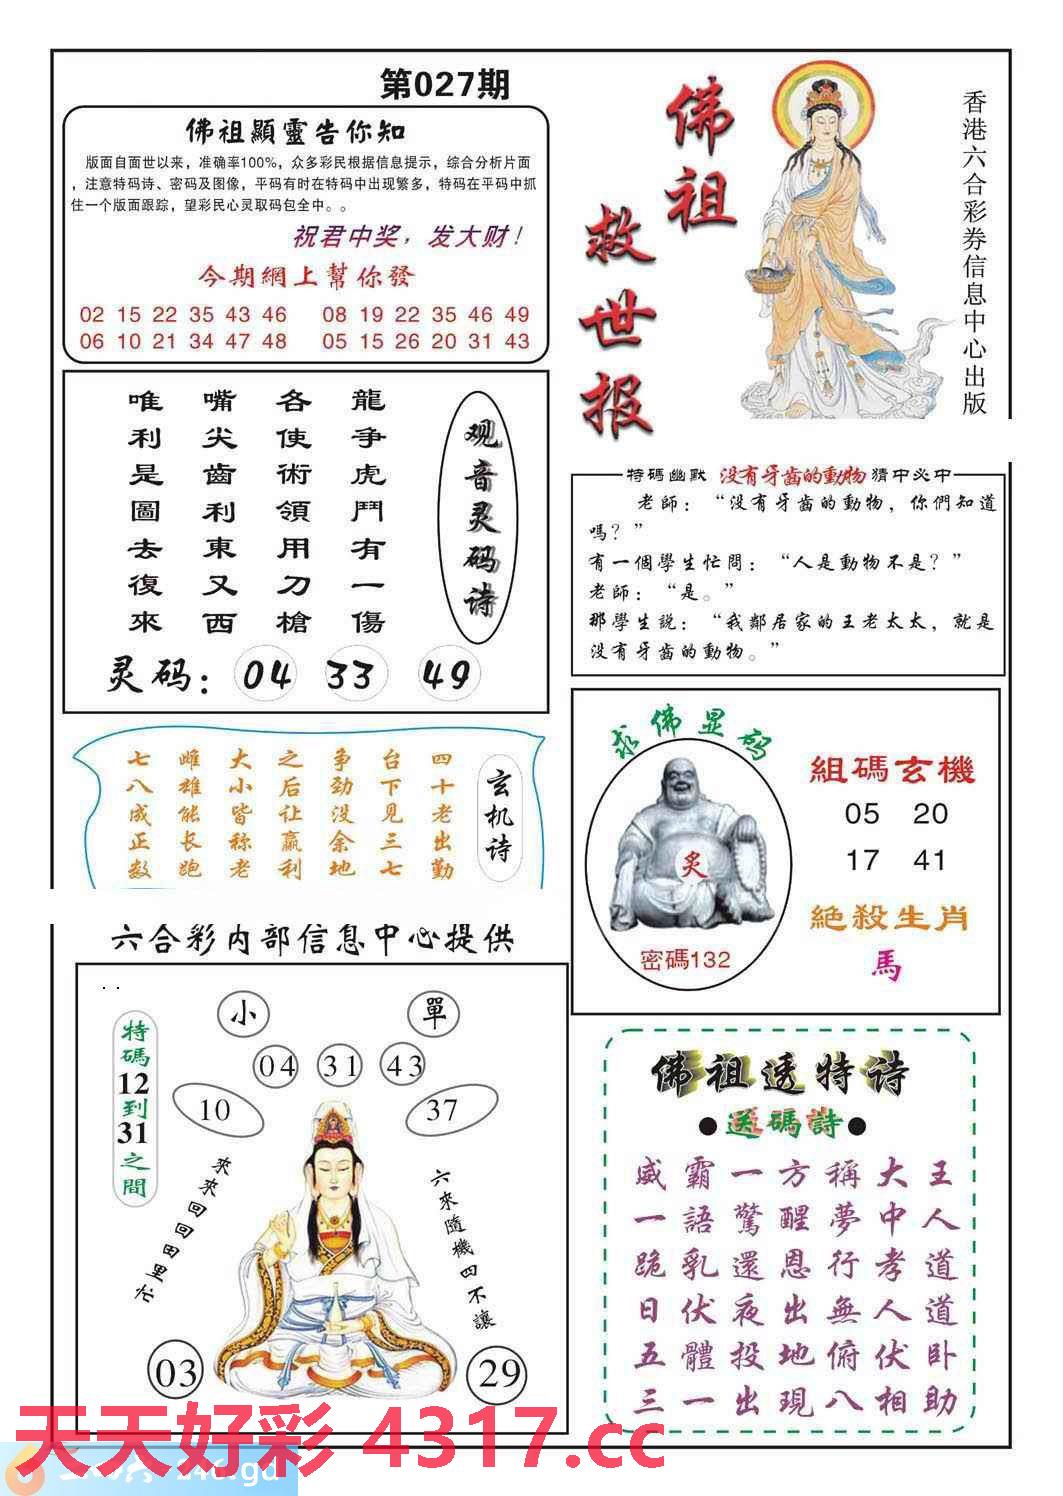 第027期
佛祖顯靈告你知
版面自面世以来，准确率100%，众多彩民根据信息提示，综合分析片面
，注意特码诗、密码及图像，平码有时在特码中出现繁多，特码在平码中抓
住一个版面跟踪，望彩民心灵取码包全中。。
祝君中奖，发大财！
今期網上幫你發
02 15 22 35 43 46 08 19 22 35 46 49
06 10 21 34 47 48 05 15 26 20 31 43
佛祖
救世报
香港六合彩券信息中心出版
观音灵码诗
龍争虎鬥有一傷
各使術領用刀槍
嘴尖齒利東又西
唯利是圖去復來
灵码：04 33 49
特碼幽默 没有牙齒的動物 猜中必中
老師：“没有牙齒的動物，你們知道
嗎？”
有一個學生忙問：“人是動物不是？”
老師：“是。”
那學生説：“我鄰居家的王老太太，就是
没有牙齒的動物。”
玄机诗
四十老出勤
台下见三七
争劲没余地
之后让赢利
大小皆称老
雌雄能长跑
七八成正数
求佛显码
炙
密碼132
組碼玄機
05 20
17 41
絕殺生肖
馬
六合彩内部信息中心提供
小 單
04 31 43
10 37
特碼12到31之間
來來回回田里忙
六來隨機四不讓
03 29
佛祖透特诗
●送碼詩●
威霸一方稱大王
一語驚醒夢中人
跪乳還恩行孝道
日伏夜出無人道
五體投地俯伏卧
三一出現八相助
天天好彩 4317.cc
246.gd